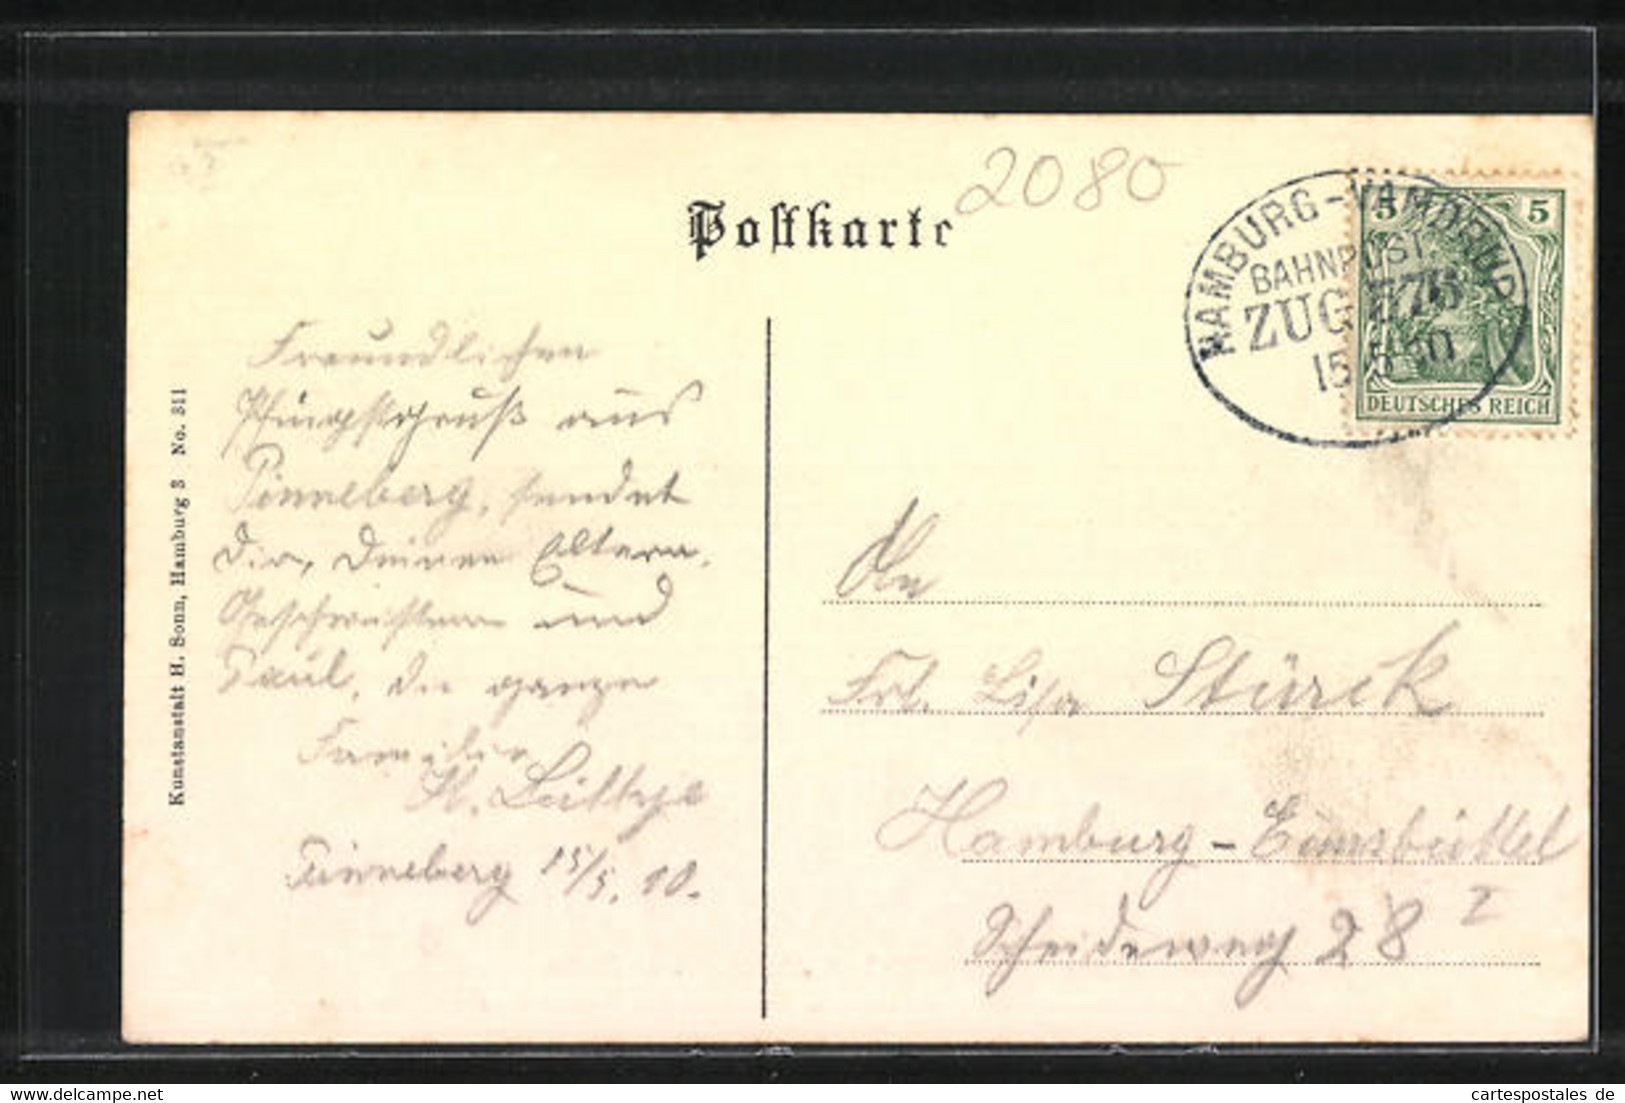 2080
Postkarte
HAMBURG-VAMDRUP
BAHNPOST.
ZUG 576
15.5.10
5 5
DEUTSCHES REICH
Freundlichen
Pfingstgruß aus
Pinneberg, sendet
Dir, Deinen Eltern,
Geschwistern und
Paul, die ganze
Familie
Pinneberg 15/5. 10.
Kunstanstalt H. Sonn, Hamburg 3 No. 311
An
Frl. Lisa Stürck
Hamburg-Eimsbüttel
Scheideweg 28 I
www.cartespostales.de